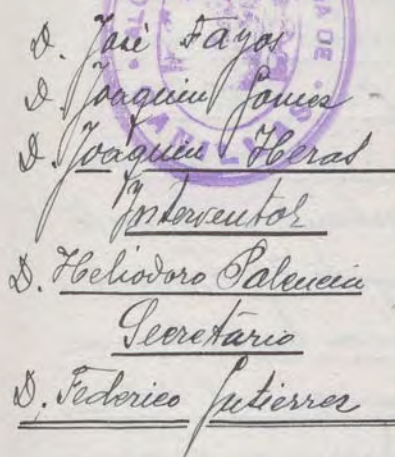 D. José Fayos
D. Joaquin Gomez
D. Joaquin Heras
Interventor
D. Heliodoro Palencia
Secretário
D. Federico Gutierrez